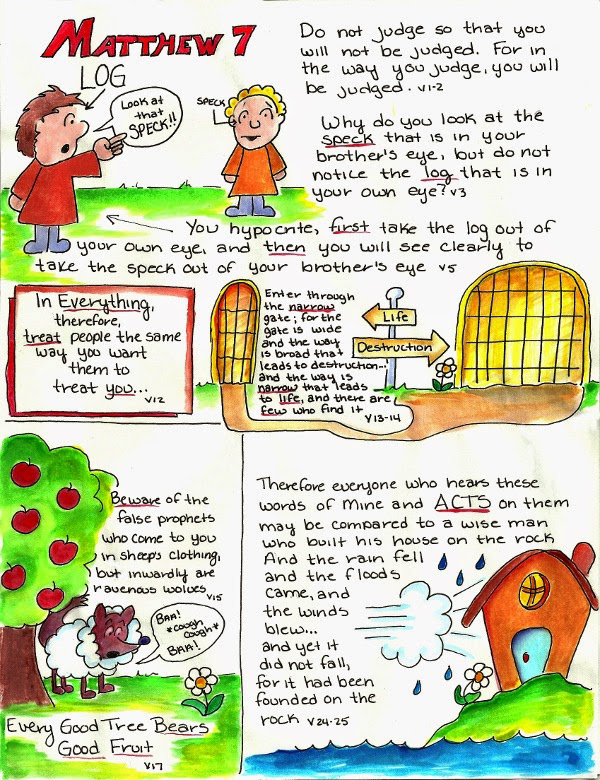 MATTHEW 7
Do not judge so that you
will not be judged. For in
the way you judge, you will
be judged. v1-2
LOG
Look at
that
SPECK!!
SPECK
Why do you look at the
speck that is in your
brother's eye, but do not
notice the log that is in
your own eye? v3
You hypocrite, first take the log out of
your own eye, and then you will see clearly to
take the speck out of your brother's eye v5
In Everything,
therefore,
treat people the same
way you want
them to
treat you...
v12
Enter through
the narrow
gate; for the
gate is wide
and the way
is broad that
leads to destruction...
and the way is
narrow that leads
to life, and there are
few who find it
v13-14
Life
Destruction
Beware of the
false prophets
who come to you
in sheep's clothing,
but inwardly are
ravenous wolves
v15
BAA!
*cough,
cough*
BAA!
Every Good Tree Bears
Good Fruit
v17
Therefore everyone who hears these
words of Mine and ACTS on them
may be compared to a wise man
who built his house on the rock
And the rain fell
and the floods
came, and
the winds
blew...
and yet it
did not fall,
for it had been
founded on the
rock v24-25